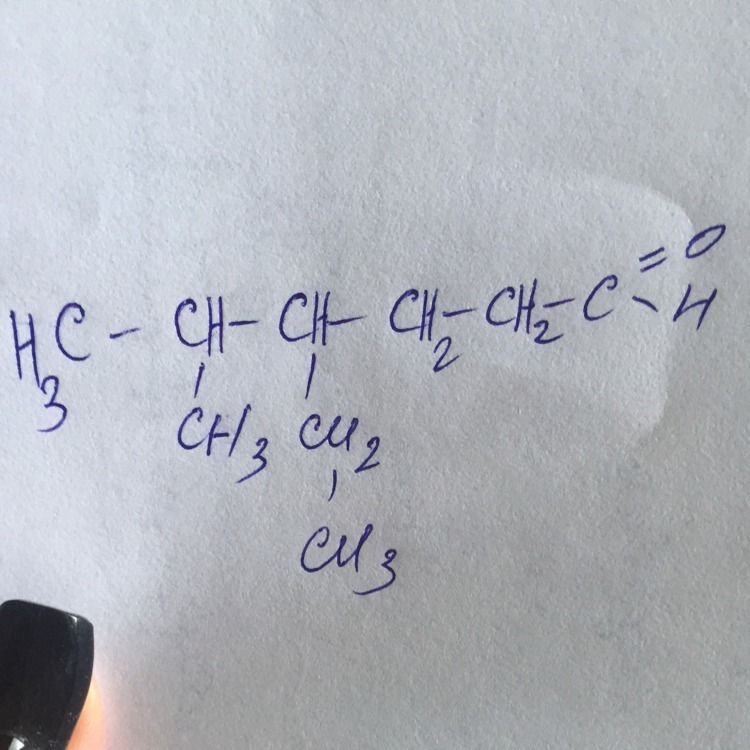 H3C - CH - CH - CH2 - CH2 - C = O
- H
CH3 CH2
CH3